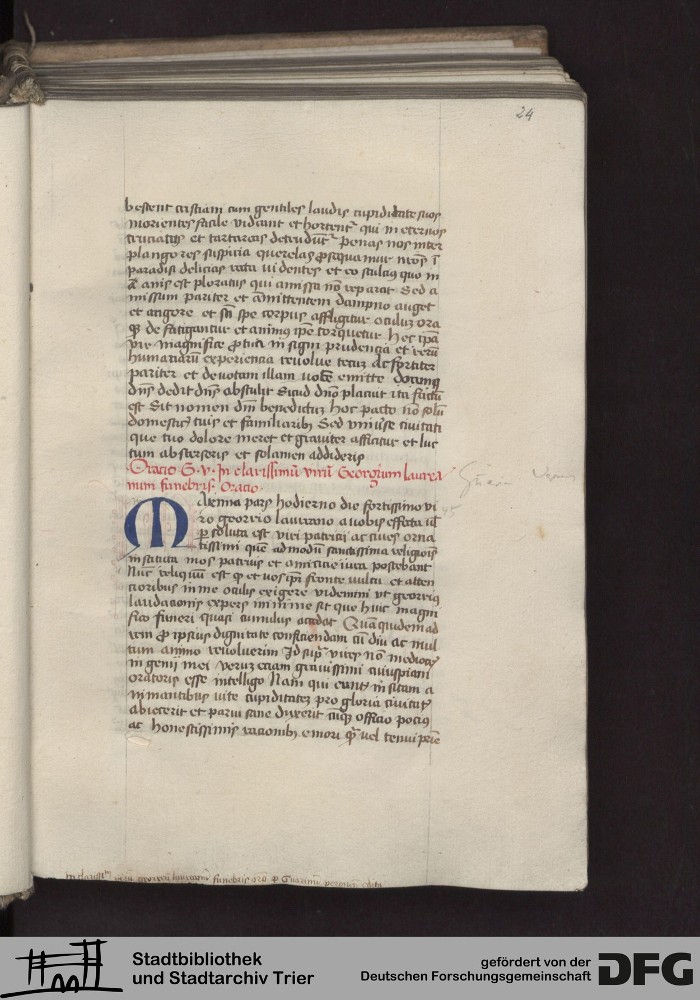 24
bestent cristiani cum gentiles laudis cupiditate suos
morientes facile videant et hortentr qui in eternos
cruciatus et tartareas detrudūtr penas nos inter
plangores suspiria querelas ꝓsequamur nros ī
paradisi delicias vita videntes et eo stulcius quo in
anis est ploratus qui amissa nō reparat Sed a
missum pariter et amittentem dampno auget
et angore et sū spe corpus affligitur oculus ora
qꝫ de fatigantur et animus ipe torquetur Hec ipā
vir magnifice ꝓ tua in signi prudencia et rerū
humanarū experiencia revolue tecū Ac fortiter
pariter et devotam illam vocē emitte
dns dedit dns abstulit Sicud dno placuit ita factū
est Sit nomen dni benedictū hoc pacto nō solū
domesticis tuis et familiaribꝫ Sed universe civitati
que tuo dolore meret et graviter afficitur et luc
tum absterseris et solamen addideris
Oracio G. v. In clarissimū virū Georgium laureā
num funebris Oracio
Maxima pars hodierno die fortissimo vi
ro georgio laurano a vobis effecta
ꝑsoluta est viri patricii ac cives orna
tissimi quē admodū sanctissima religionis
instituta mos patrius et amicicie iura postebant
Nūc reliquū est et vos ipi fronte vultu et atten
cioribus in me oculis exigere videmini vt georgius
laudacionis expers minime sit que huic magni
fico funeri quasi cumulus accedat Quā quidem ad
rem ꝓ ipsius dignitate conficiendam cū diu ac mul
tum animo revoluerim Id supra vires nō mediocris
ingenii mei verum eciam gravissimi cuiuspiam
oratoris esse intelligo Nam qui cunctis insitam a
nimantibus vite cupiditatem pro gloria civitatis
abiecerit et parvi sane duxerit cūqꝫ officio pocius
ac honestissimis racionibꝫ emori qꝫ vel tenui
in clarissm virū georgiū lauranum funebris oro ꝑ Guarinū veronen edita
Stadtbibliothek
und Stadtarchiv Trier
gefördert von der
Deutschen Forschungsgemeinschaft DFG